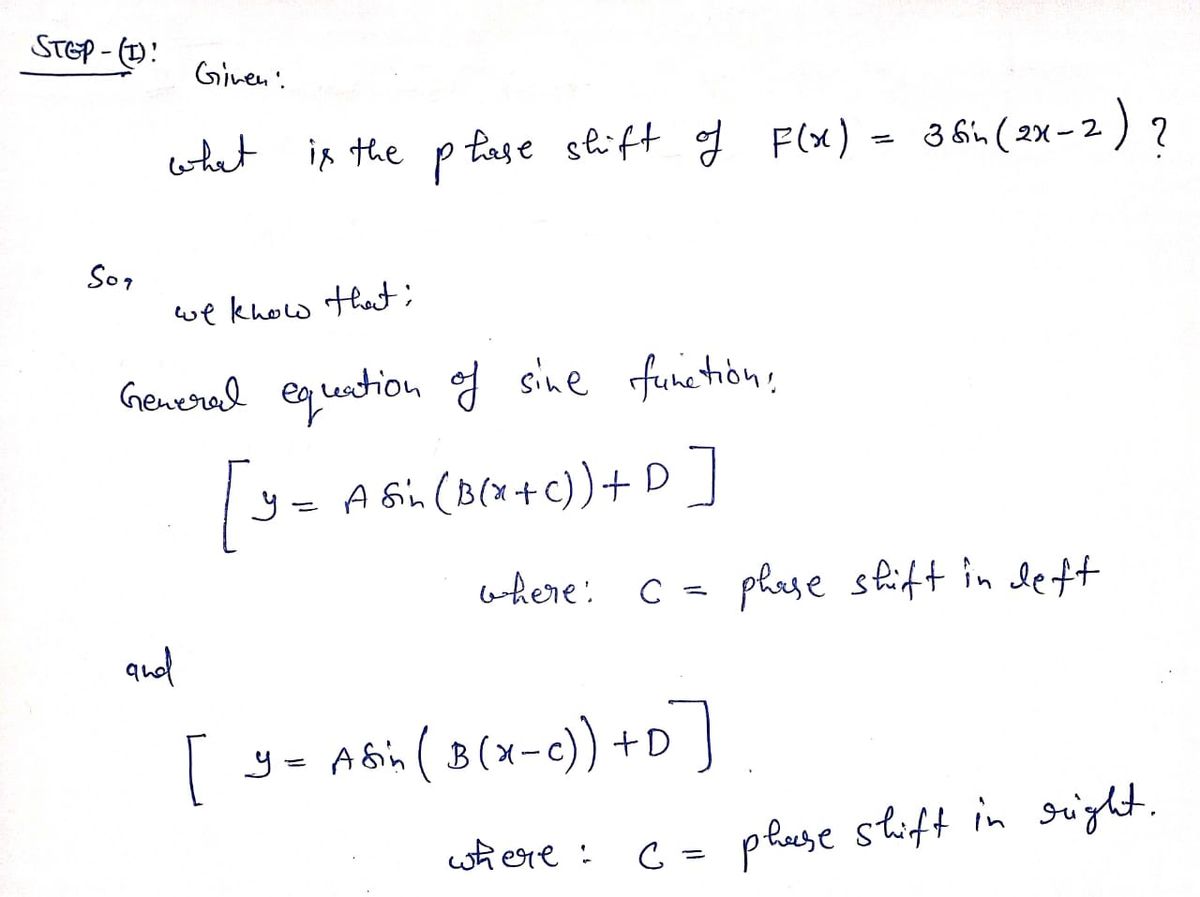 STEP-(I):
Given:
what is the phase shift of F(x) = 3 sin(2x-2) ?
So,
we know that:
General equation of sine function:
[y = A sin(B(x+c))+D]
where: c = phase shift in left
and
[y = A sin(B(x-c))+D]
where: c = phase shift in right.